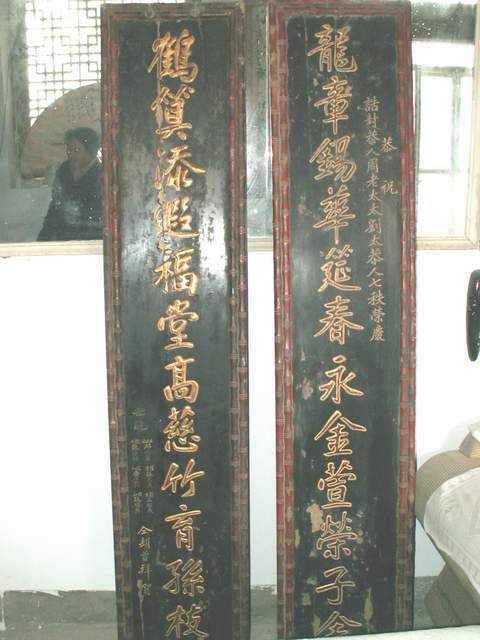 恭祝
誥封恭人周老太太劉太恭人七秩榮慶
龍章錫華筵春永金萱榮子舍
鶴算添遐福堂高慈竹育孫枝
仝頓首拜賀